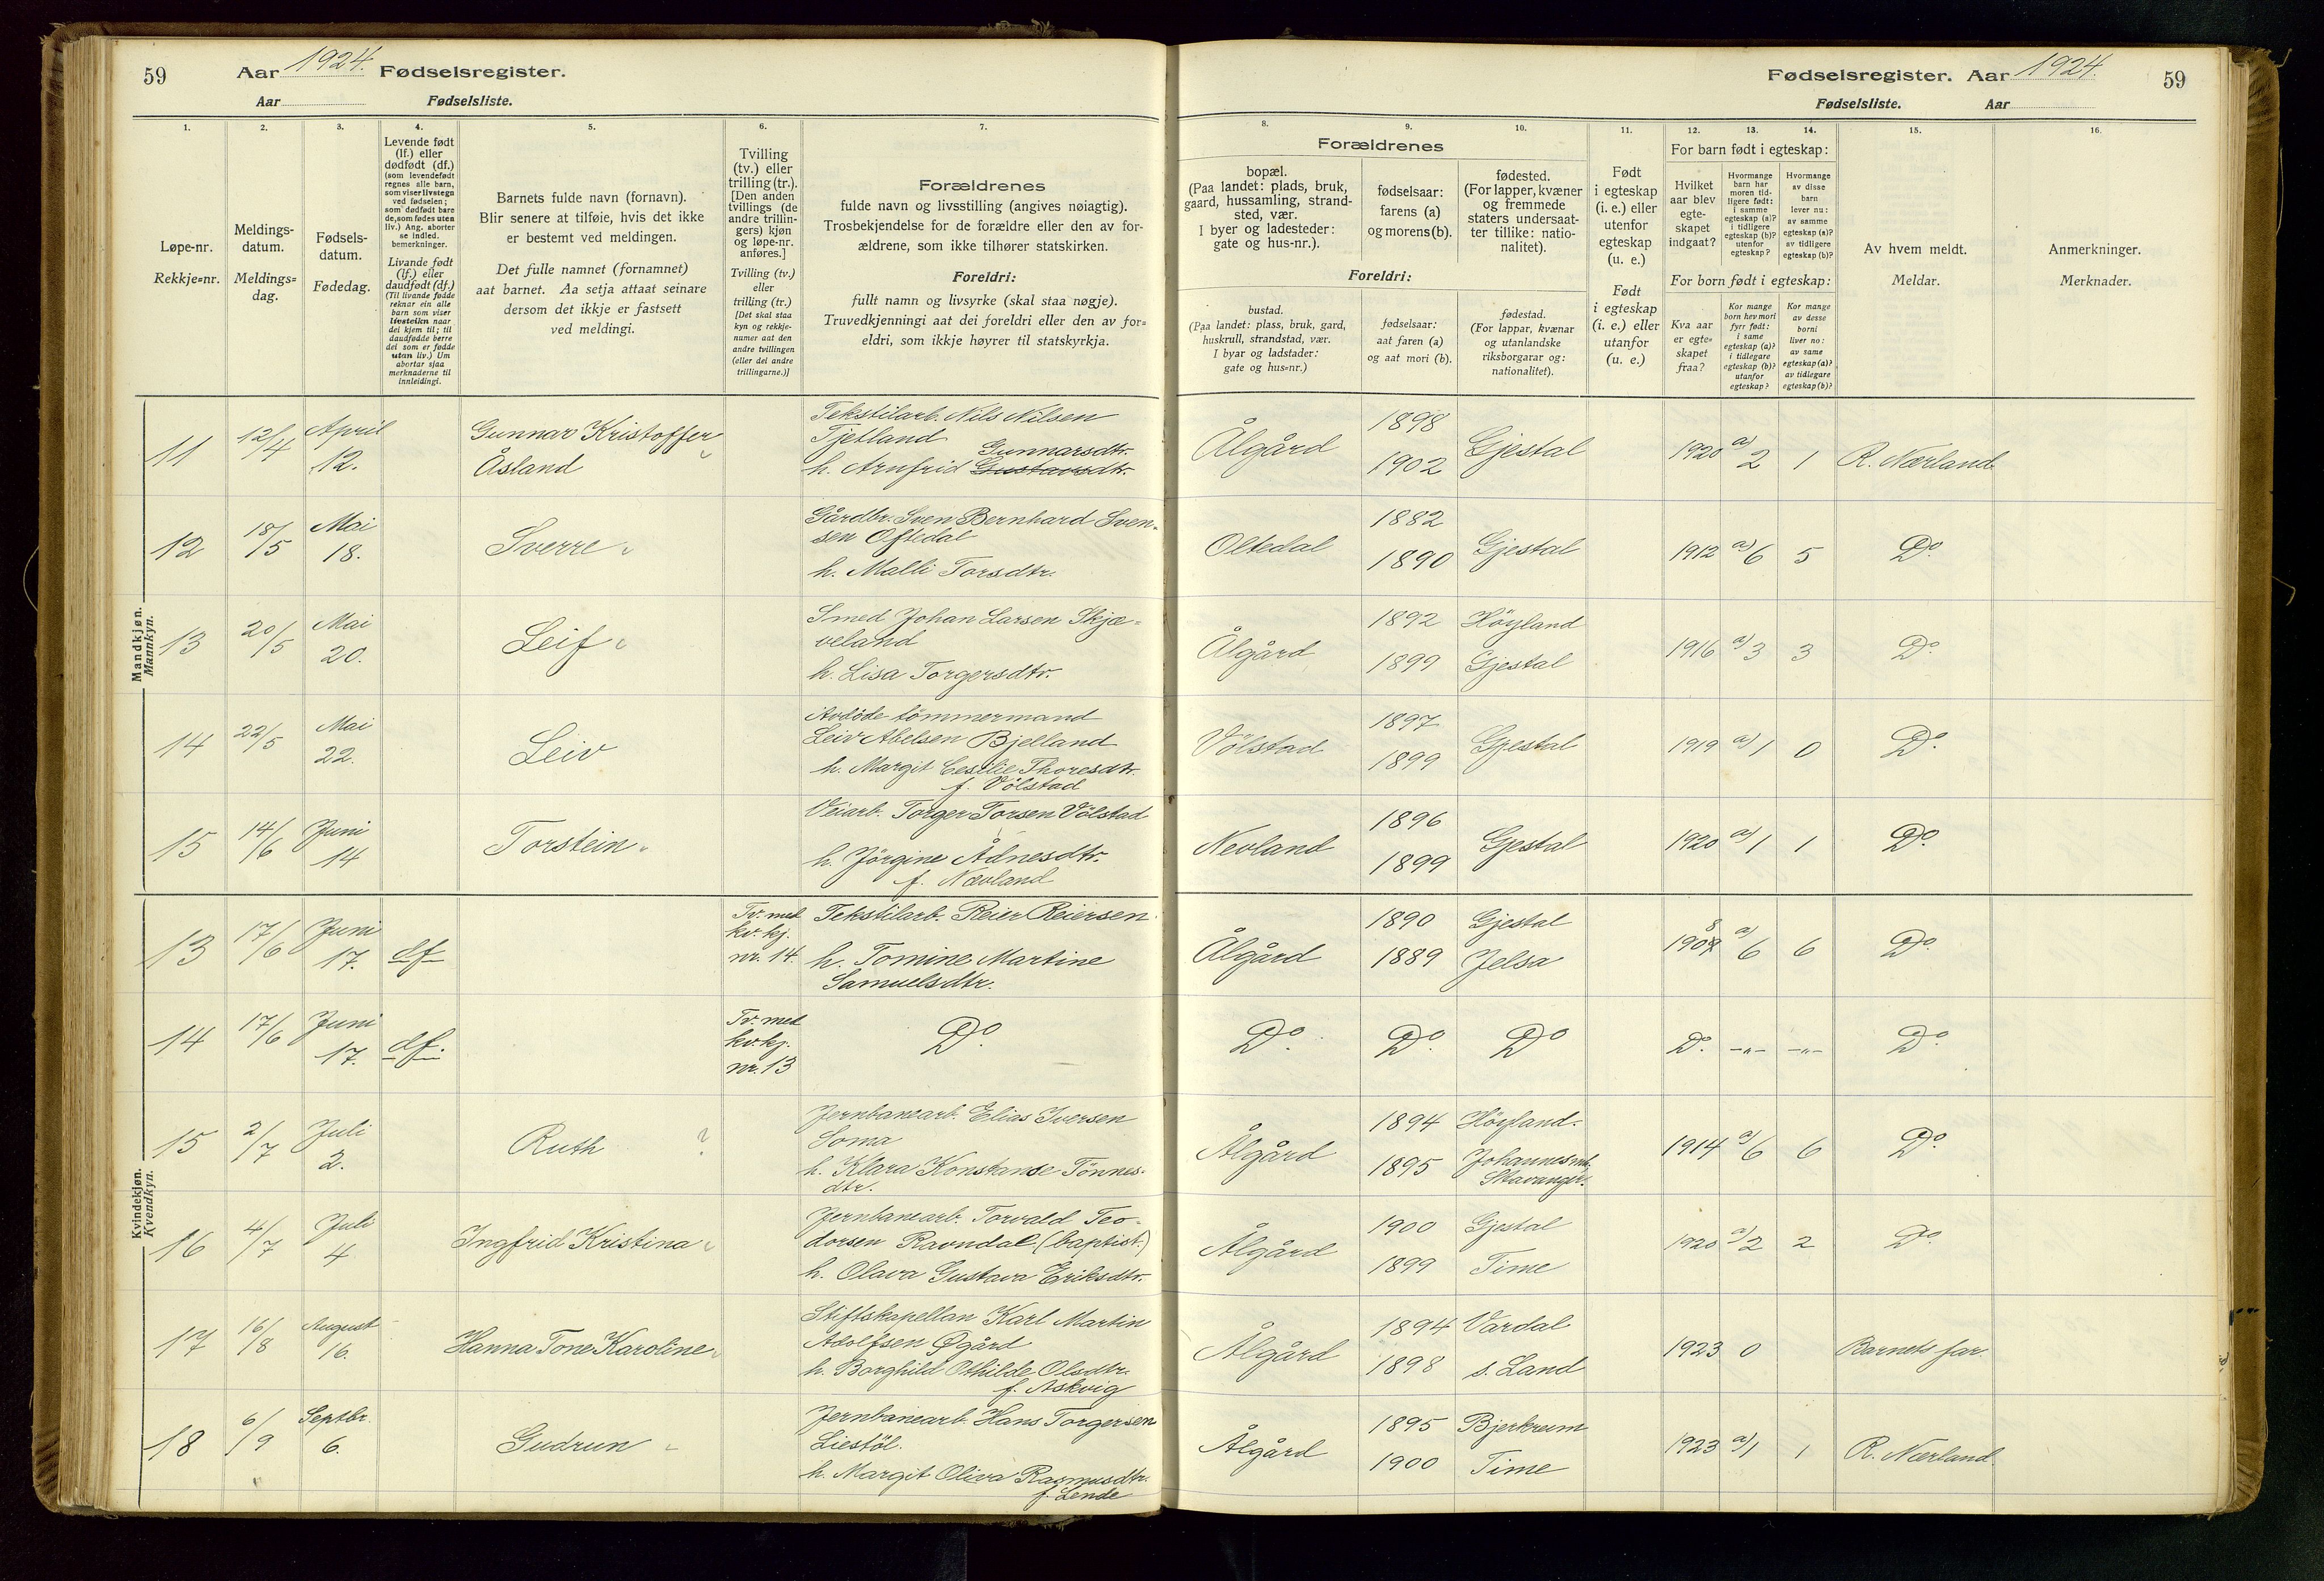 59 Aar 1924. Fødselsregister.
Aar Fødselsliste.
Fødselsregister. Aar 1924. 59
Fødselsliste. Aar
1. 2. 3. 4. 5. 6. 7. 8. 9. 10. 11. 12. 13. 14. 15. 16.
Løpe-nr.
Rekkje=nr.
Meldings-
datum.
Meldings=
dag.
Fødsels-
datum.
Fødedag.
Levende født
(lf.) eller
dødfødt (df.)
(som levendefødt
regnes alle barn,
som viser livstegn
ved fødselen;
som dødfødt bare
de, som fødes uten
liv.) Ang. aborter
se indled.
bemerkninger.
Livande født
(lf.) eller
daudfødt (df.)
(Til livande fødde
reknar ein alle
barn som viser
livsteikn naar
dei kjem til; til
daudfødde berre
dei som er fødde
utan liv.) Um
abortar sjaa
merknaderne til
innleidingi.
Barnets fulde navn (fornavn).
Blir senere at tilføie, hvis det ikke
er bestemt ved meldingen.
Det fulle namnet (fornamnet)
aat barnet. Aa setja attaat seinare
dersom det ikkje er fastsett
ved meldingi.
Tvilling
(tv.) eller
trilling (tr.).
[Den anden
tvillings (de
andre trillin-
gers) kjøn
og løpe-nr.
anføres.]
Tvilling (tv.)
eller
trilling (tr.)
[Det skal staa
kyn og rekkje-
numer aat den
andre tvillingen
(eller dei andre
trillingarne.)]
Forældrenes
fulde navn og livsstilling (angives nøiagtig).
Trosbekjendelse for de forældre eller den av for-
ældrene, som ikke tilhører statskirken.
Foreldri:
fullt namn og livsyrke (skal staa nøgje).
Truvedkjenningi aat dei foreldri eller den av for=
eldri, som ikkje høyrer til statskyrkja.
Forældrenes
bopæl.
(Paa landet: plads, bruk,
gaard, hussamling, strand-
sted, vær.
I byer og ladesteder:
gate og hus-nr.).
fødselsaar:
farens (a)
og morens (b).
fødested.
(For lapper, kvæner
og fremmede
staters undersaat-
ter tillike: natio-
nalitet).
Foreldri:
bustad.
(Paa landet: plass, bruk, gard,
huskrull, strandstad, vær.
I byar og ladstader:
gate og hus=nr.)
fødselsaar:
aat faren (a)
og aat mori (b).
fødestad.
(For lappar, kvænar
og utanlandske
riksborgarar og:
nationalitet).
Født
i egteskap
(i. e.) eller
utenfor
egteskap
(u. e.)
Født
i egteskap
(i. e.) eller
utanfor
(u. e.)
For barn født i egteskap:
Hvilket
aar blev
egte-
skapet
indgaat?
Hvormange
barn har
moren tid-
ligere født:
i samme
egteskap (a)?
i tidligere
egteskap (b)?
utenfor
egteskap?
Hvormange
av disse
barn
lever nu:
av samme
egteskap (a)?
av tidligere
egteskap (b)?
For born født i egteskap:
Kva aar
er egte=
skapet
fraa?
Kor mange
born hev mori
fyrr født:
i same
egteskap (a)?
i tidlegare
egteskap (b)?
utanfor
egteskap?
Kor mange
av desse
borni
liver no:
av same
egteskap (a)?
av tidlegare
egteskap (b)?
Av hvem meldt.
Meldar.
Anmerkninger.
Merknader.
Mandkjøn.
Mannkyn.
11 12/4 April 12. Gunnar Kristoffer Åsland
Tekstilarb. Nils Nilsen
Tjetland
Gunnarsdtr.
h. Arnfrid Gustavsdtr.
Ålgård 1898 1902 Gjestal 1920 a) 2 1 R. Nærland
12 18/5 Mai 18. Sverre
Gårdbr. Sven Bernhard Sven-
sen Oftedal
h. Malli Torsdtr.
Oltedal 1882 1890 Gjestal 1912 a) 6 5 Do.
13 20/5 Mai 20. Leif
Smed Johan Larsen Skjæ-
veland
h. Lisa Torgersdtr.
Ålgård 1892 Höyland 1899 Gjestal 1916 a) 3 3 Do.
14 22/5 Mai 22. Leiv
Avdöde tömmermand
Leiv Abelsen Bjelland
h. Margit Cecilie Thoresdtr.
f. Völstad
Völstad 1897 1899 Gjestal 1919 a) 1 0 Do.
15 14/6 Juni 14 Torstein
Veiarb. Torger Torsen Völstad
h. Jörgine Ådnesdtr.
f. Nævland
Nevland 1896 1899 Gjestal 1920 a) 1 1 Do.
Kvindekjøn.
Kvendkyn.
13 17/6 Juni 17. df Tv. med
kv. kj.
nr. 14.
Tekstilarb. Reier Reiersen
h. Tomine Martine
Samuelsdtr.
Ålgård 1890 Gjestal 1889 Jelsa 1908 a) 6 6 Do.
14 17/6 Juni 17. df. Tv. med
kv. kj.
nr. 13
Do. Do. Do. Do Do. -„- -„- Do.
15 2/7 Juli 2. Ruth ?
Jernbanearb. Elias Iversen
Soma
h. Klara Konstanse Tönnes-
dtr.
Ålgård 1894 Höyland. 1895 Johannesmh.
Stavanger. 1914 a) 6 6 Do.
16 4/7 Juli 4 Ingfrid Kristina
Jernbanearb. Torvald Teo-
dorsen Ravndal (baptist.)
h. Olava Gustava Eriksdtr.
Ålgård 1900 Gjestal 1899 Time 1920 a) 2 2 Do.
17 16/8 August 16. Hanna Tone Karoline
Stiftskapellan Karl Martin
Adolfsen Øgård
h. Borghild Othilde Olsdtr.
f. Askvig
Ålgård 1894 Vardal 1898 s. Land 1923 0 Barnets far.
18 6/9 Septbr. 6. Gudrun
Jernbanearb. Hans Torgersen
Liestöl.
h. Margit Oliva Rasmusdtr.
f. Lende
Ålgård 1895 Bjerkreim 1900 Time 1923 a) 1 1 R. Nærland.